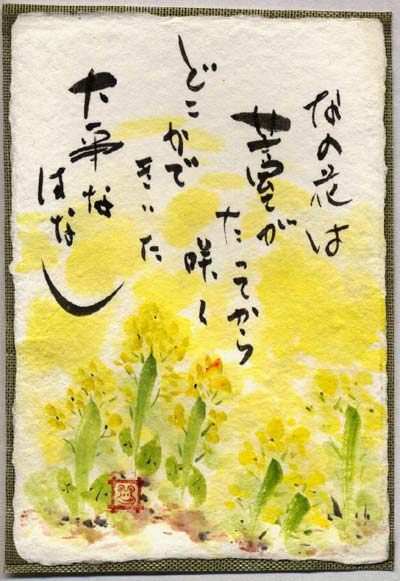 なの花は
薹が
たってから
咲く
どこかで
きいた
大事な
はなし